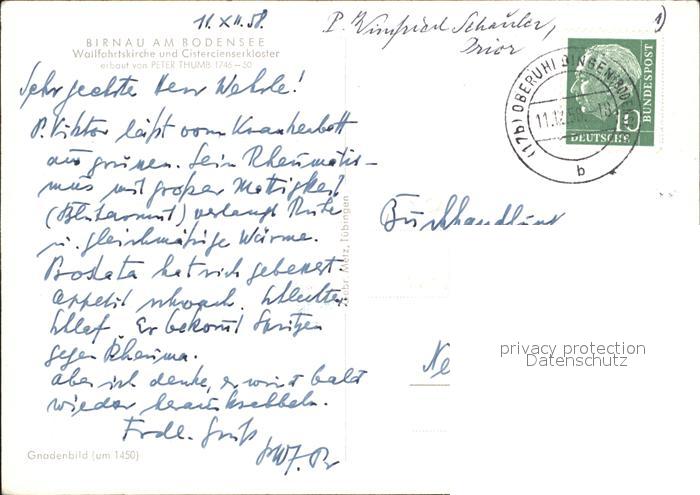 11. XII. 58.
BIRNAU AM BODENSEE
Wallfahrtskirche und Cistercienserkloster
erbaut von PETER THUMB 1746–50
Sehr geehrter Herr Wehrle!
P. Viktor läßt vom Krankenbett
aus grüssen. Sein Rheumatis-
mus mit großer Mattigkeit
(Blutarmut) verlangt Ruhe
u. gleichmäßige Wärme.
hat sich gebessert.
Appetit schwach. Schlechter
Schlaf. Er bekommt Spritzen
gegen Rheuma.
Aber ich denke, er wird bald
wieder herauskrabbeln.
Frdl. Gruß
Gnadenbild (um 1450)
Metz, Tübingen
P. Winfried Schäuler,
Prior
(17b) OBERUHLDINGEN (BODENSEE)
11.12.58
b
10
DEUTSCHE
BUNDESPOST
Buchhandlung
Ne
privacy protection
Datenschutz